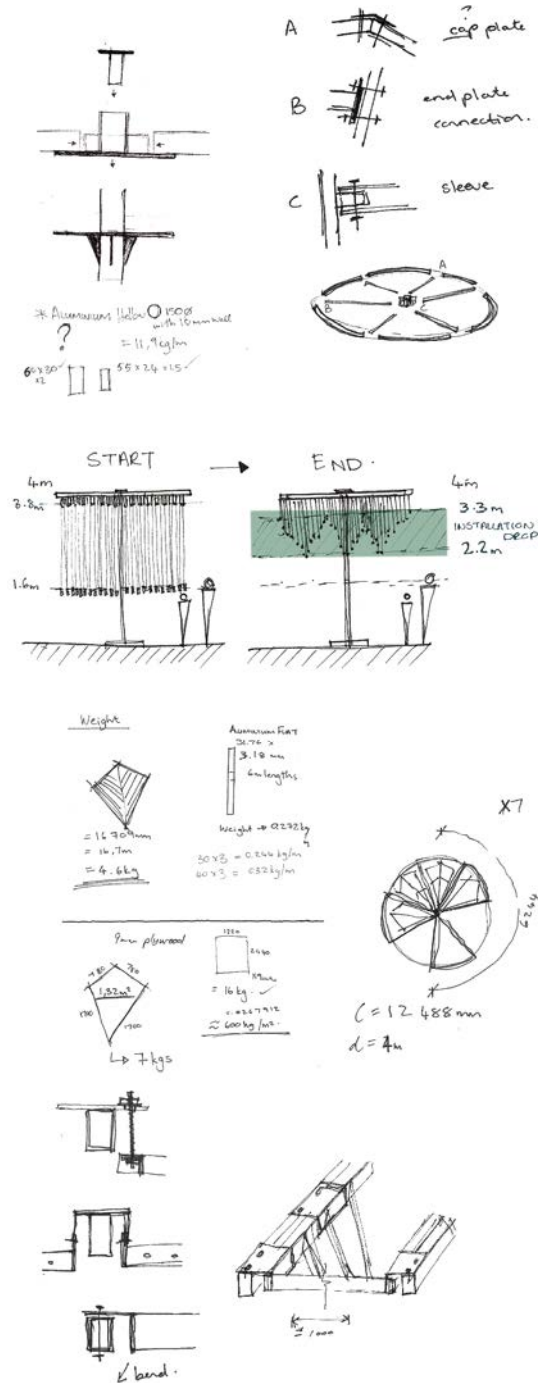 A
?
cap plate
B
end plate
connection.
C
sleeve
A
B
C
* Aluminium Hollow O 150ø
with 10mm wall
?
= 11,9kg/m
60x30
x2
55 x 24 x 1.5 ✓
START → END.
4m
3.8m
1.6m
4m
3.3m
INSTALLATION
DROP
2.2m
Weight
= 16 709mm
= 16,7m
= 4.6kg
Aluminium FLAT
3.18 mm
6m lengths
Weight → 0.272kg
30 x 3 = 0.244 kg/m
40 x 3 = 0.32 kg/m
x7
6244
C = 12 488mm
d = 4m
9mm plywood
780
780
1,32m²
1700
1700
↳ 7 kgs
1220
2440
x9mm
= 16 kg. ✓
≈ 600 kg/m².
≈ 1000
↙ bend.